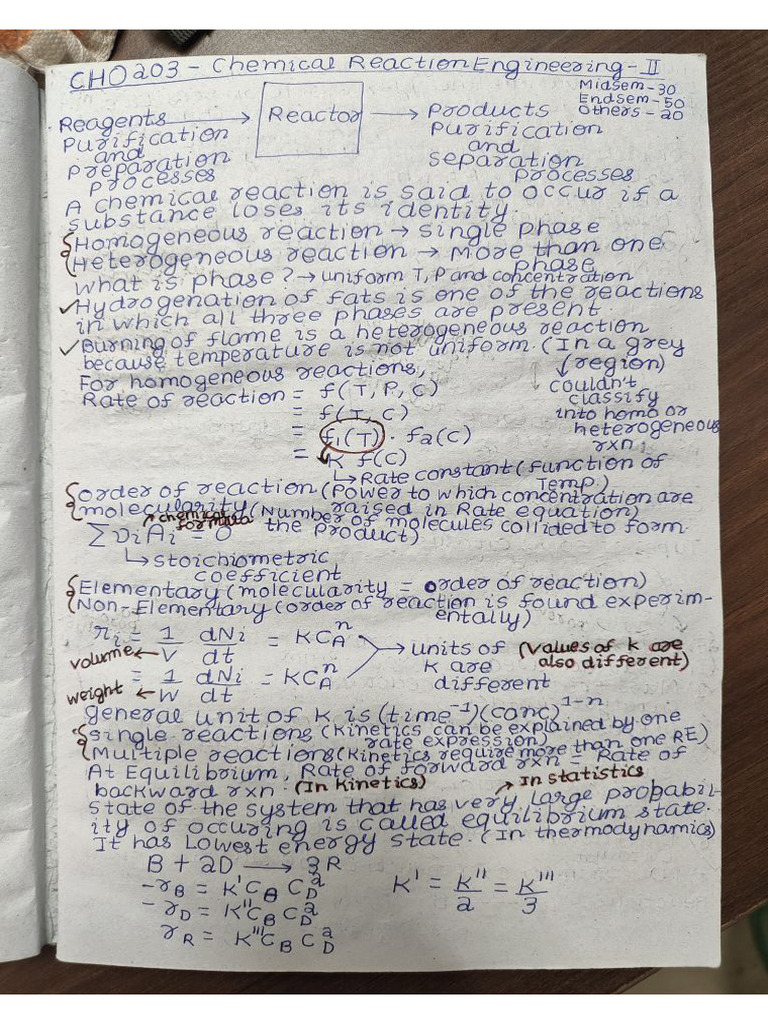 CHO203 - Chemical Reaction Engineering - II
Midsem - 30
Endsem - 50
Others - 20
Reagents → Reactor → Products
Purification and Preparation processes
Purification and separation processes
A chemical reaction is said to occur if a
substance loses its identity.
{ Homogeneous reaction → single phase
{ Heterogeneous reaction → More than one phase
what is phase ? → uniform T, P and concentration
✓ Hydrogenation of fats is one of the reactions
in which all three phases are present.
✓ Burning of flame is a heterogeneous reaction
because temperature is not uniform. (In a grey region)
↓ couldn't classify into homo or heterogeneous rxn
For homogeneous reactions,
Rate of reaction = f(T, P, C)
= f(T, C)
= f₁(T) . f₂(C)
= K f(C)
↳ Rate constant (function of Temp.)
{ order of reaction (Power to which concentration are raised in Rate equation)
{ molecularity (Number of molecules collided to form the product)
Σ νi Ai = 0
chemical formula
↳ stoichiometric coefficient
{ Elementary (molecularity = order of reaction)
{ Non-Elementary (order of reaction is found experim-
entally)
ri = 1/V dNi/dt = KC_A^n
volume ←
= 1/W dNi/dt = KC_A^n
weight ←
→ units of K are different (values of k are also different)
general unit of K is (time⁻¹)(conc)^1-n
{ single reactions (Kinetics can be explained by one rate expression)
{ Multiple reactions (Kinetics require more than one RE)
At Equilibrium, Rate of forward rxn = Rate of
backward rxn. (In Kinetics) → In statistics
state of the system that has very large probabil-
ity of occuring is called equilibrium state.
It has Lowest energy state. (In thermodynamics)
B + 2D → 3R
-r_B = K' C_B C_D^2
-r_D = K'' C_B C_D^2
r_R = K''' C_B C_D^2
K' = K''/2 = K'''/3